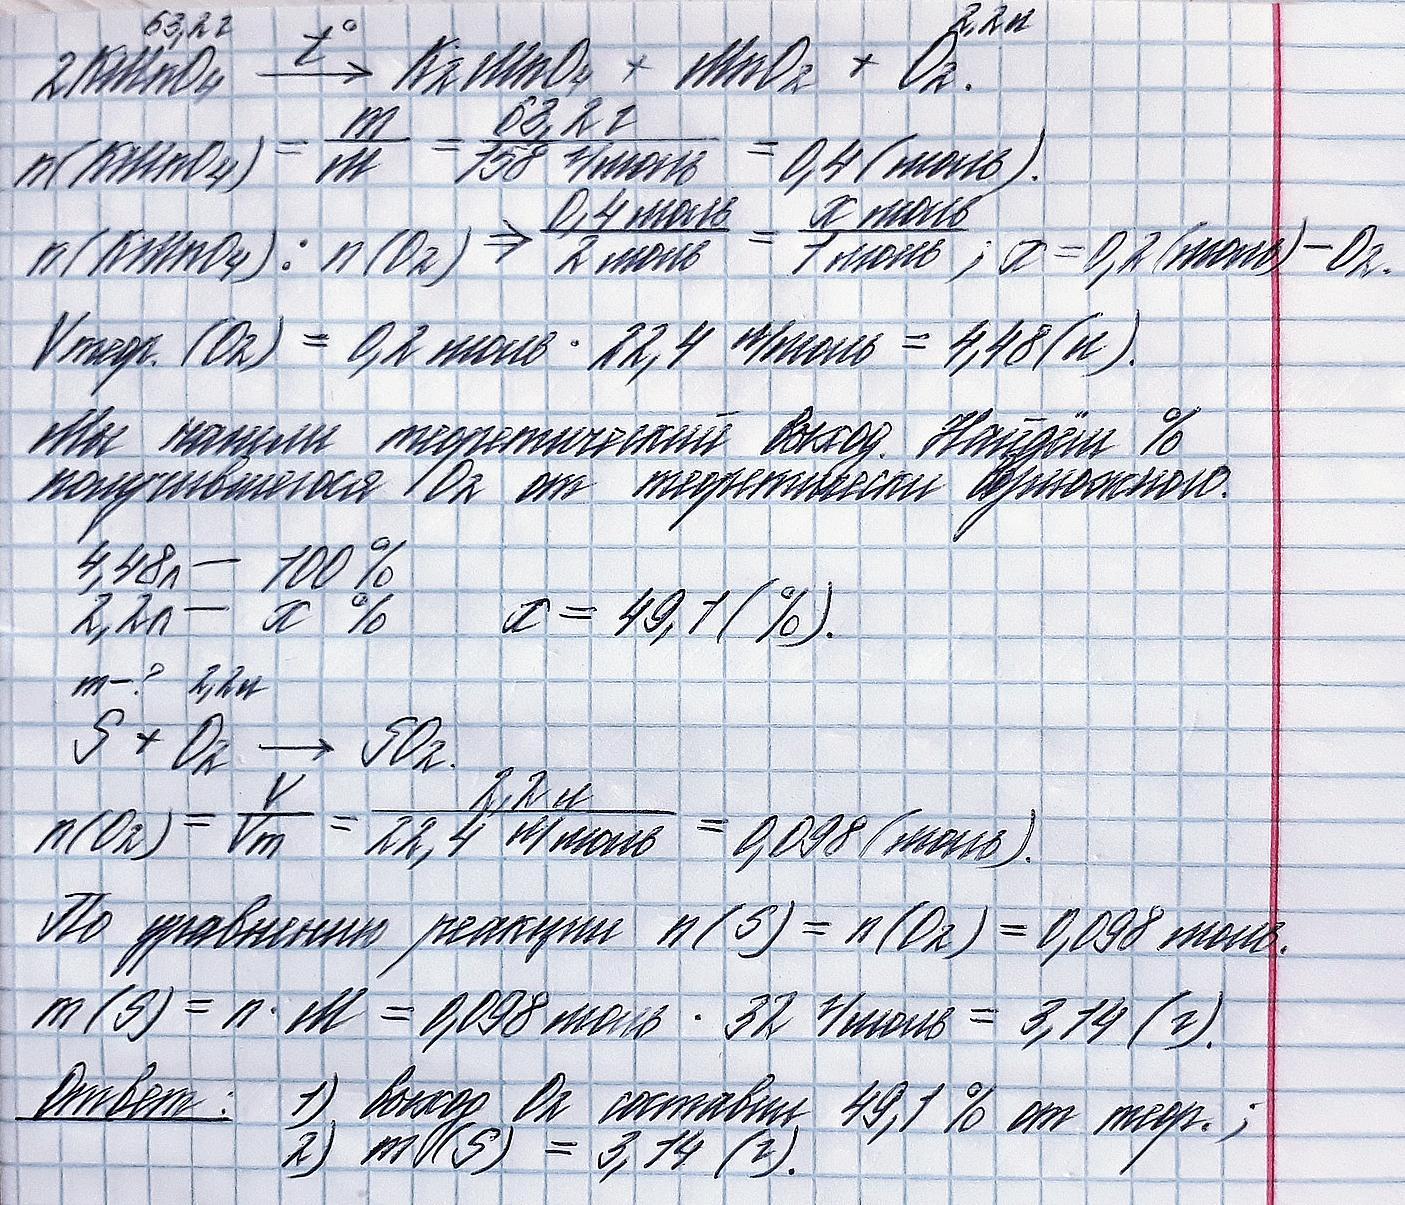 63,2 г 2,2л
2KMnO4 t° → K2MnO4 + MnO2 + O2.
n(KMnO4) = m/M = 63,2 г/158 г/моль = 0,4 (моль).
n(KMnO4) : n(O2) ⇒ 0,4 моль/2 моль = x моль/1 моль ; x = 0,2(моль) – O2.
Vтеор. (O2) = 0,2 моль · 22,4 л/моль = 4,48(л).
Мы нашли теоретический выход. Найдём %
получившегося O2 от теоретически возможного.
4,48л – 100 %
2,2л – x % x = 49,1(%).
m-? 2,2л
S + O2 → SO2.
n(O2) = V/Vm = 2,2 л/22,4 л/моль = 0,098 (моль).
По уравнению реакции n(S) = n(O2) = 0,098 моль.
m(S) = n · M = 0,098 моль · 32 г/моль = 3,14 (г).
Ответ: 1) выход O2 составил 49,1 % от теор. ;
2) m(S) = 3,14 (г).